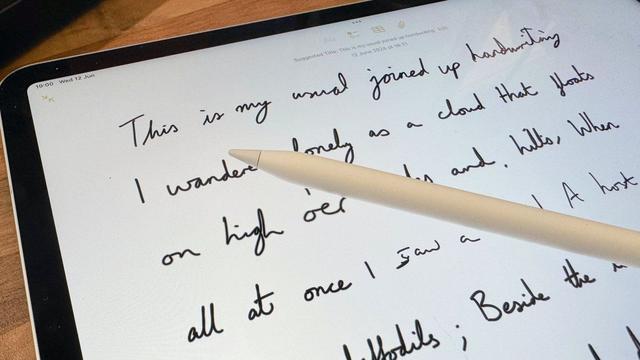 10:00 Wed 12 Jun
Suggested Title: This is my usual joined up handwriting
12 June 2024 at
This is my usual joined up handwriting
I wandere lonely as a cloud that floats
on high o'er and hills, When
all at once I saw a A host
; Beside the